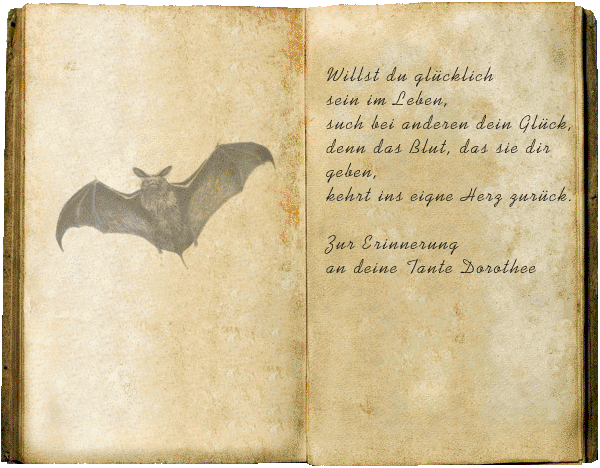 Willst du glücklich
sein im Leben,
such bei anderen dein Glück,
denn das Blut, das sie dir
geben,
kehrt ins eigne Herz zurück.
Zur Erinnerung
an deine Tante Dorothee